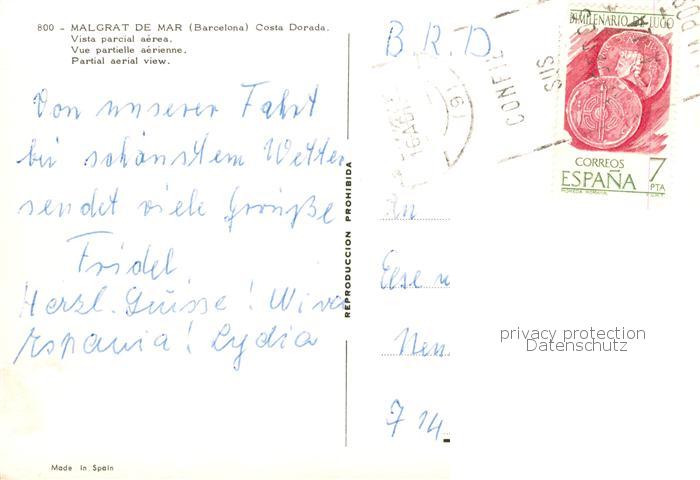 800 - MALGRAT DE MAR (Barcelona) Costa Dorada.
Vista parcial aérea.
Vue partielle aérienne.
Partial aerial view.
Von unserer Fahrt
bei schönstem Wetter
sendet viele Grüße
Fridel
Herzl. Grüsse! Viva
Espania! Lydia
Made in Spain
REPRODUCCION PROHIBIDA
B.R.D.
CONFIE
SUS
BIMILENARIO DE LUGO
CORREOS
ESPAÑA
7
PTA
An
Else
714
privacy protection
Datenschutz